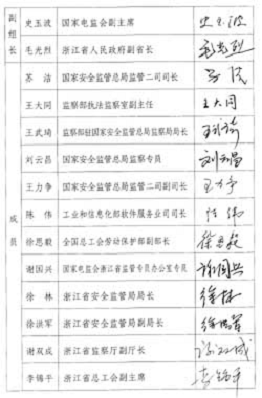 副组长
史玉波 国家电监会副主席 史玉波
毛光烈 浙江省人民政府副省长 毛光烈
成员
苏洁 国家安全监管总局监管二司司长 苏洁
王大同 监察部执法监察室副主任 王大同
王武琦 监察部驻国家安全监管总局监察局局长 王武琦
刘云昌 国家安全监管总局监察专员 刘云昌
王力争 国家安全监管总局监管二司副司长 王力争
陈伟 工业和信息化部软件服务业司司长 陈伟
徐思毅 全国总工会劳动保护部副部长 徐思毅
谢国兴 国家电监会浙江省监管专员办公室专员 谢国兴
徐林 浙江省安全监管局局长 徐林
徐洪军 浙江省安全监管局副局长 徐洪军
谢双成 浙江省监察厅副厅长 谢双成
李锡平 浙江省总工会副主席 李锡平